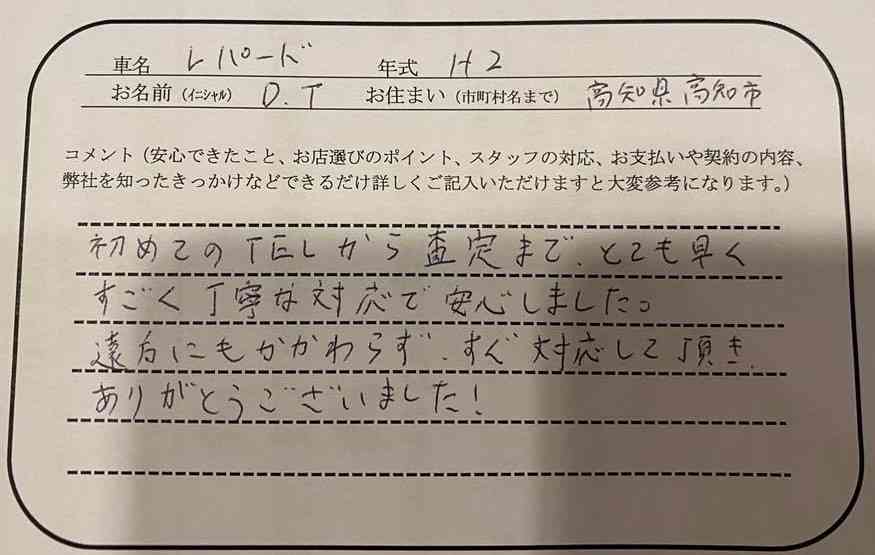 車名 レパード 年式 H2
お名前（イニシャル） D.T お住まい（市町村名まで） 高知県高知市
コメント（安心できたこと、お店選びのポイント、スタッフの対応、お支払いや契約の内容、
弊社を知ったきっかけなどできるだけ詳しくご記入いただけますと大変参考になります。）
初めてのTELから査定まで、とても早く
すごく丁寧な対応で安心しました。
遠方にもかかわらず、すぐ対応して頂き、
ありがとうございました！